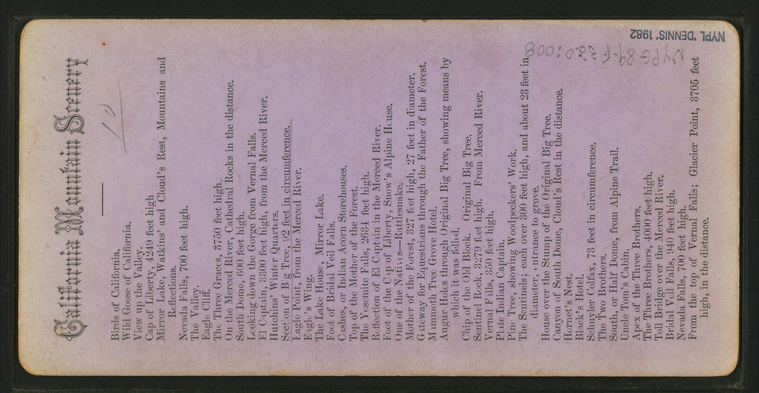 California Mountain Scenery
Birds of California.
Wild Goose of California.
View up the Valley.
Cap of Liberty, 4249 feet high
Mirror Lake, Watkins' and Cloud's Rest, Mountains and
Reflections.
Nevada Falls, 700 feet high.
The Valley.
Eagle Cliff.
The Three Graces, 3750 feet high.
On the Merced River, Cathedral Rocks in the distance.
South Dome, 6000 feet high.
Looking down the Gorge from Vernal Falls.
El Captain, 3300 feet high, from the Merced River.
Hutchins' Winter Quarters.
Section of Big Tree, 92 feet in circumference.
Eagle Point, from the Merced River.
Eagle's Wing.
The Lake House; Mirror Lake.
Foot of Bridal Veil Falls.
Cashes, or Indian Acorn Storehouses.
Top of the Mother of the Forest.
The Yosemite Falls, 2634 feet high.
Reflection of El Captain in the Merced River.
Foot of the Cap of Liberty, Snow's Alpine House.
One of the Natives—Rattlesnake.
Mother of the Forest, 327 feet high, 27 feet in diameter.
Gateway for Equestrians through the Father of the Forest.
Mammoth Tree Grove Hotel.
Augur Holes through Original Big Tree, showing means by
which it was felled.
Chip of the Old Block. Original Big Tree.
Sentinel Rock, 3270 feet high. From Merced River.
Vernal Falls, 350 feet high.
Piute Indian Captain.
Pine Tree, showing Woodpeckers' Work.
The Sentinels; each over 300 feet high, and about 23 feet in
diameter, entrance to grove.
House over the Stump of the Original Big Tree.
Canyon of South Dome, Cloud's Rest in the distance.
Hornet's Nest.
Black's Hotel.
Schuyler Colfax, 73 feet in circumference.
The Two Brothers.
South, or Half Dome, from Alpine Trail.
Uncle Tom's Cabin.
Apex of the Three Brothers.
The Three Brothers, 4000 feet high.
Toll Bridge on the Merced River.
Bridal Veil Falls, 940 feet high.
Nevada Falls, 700 feet high.
From the top of Vernal Falls; Glacier Point, 3705 feet
high, in the distance.
NYPL 'DENNIS' 1982
NYPG 89-F320:008